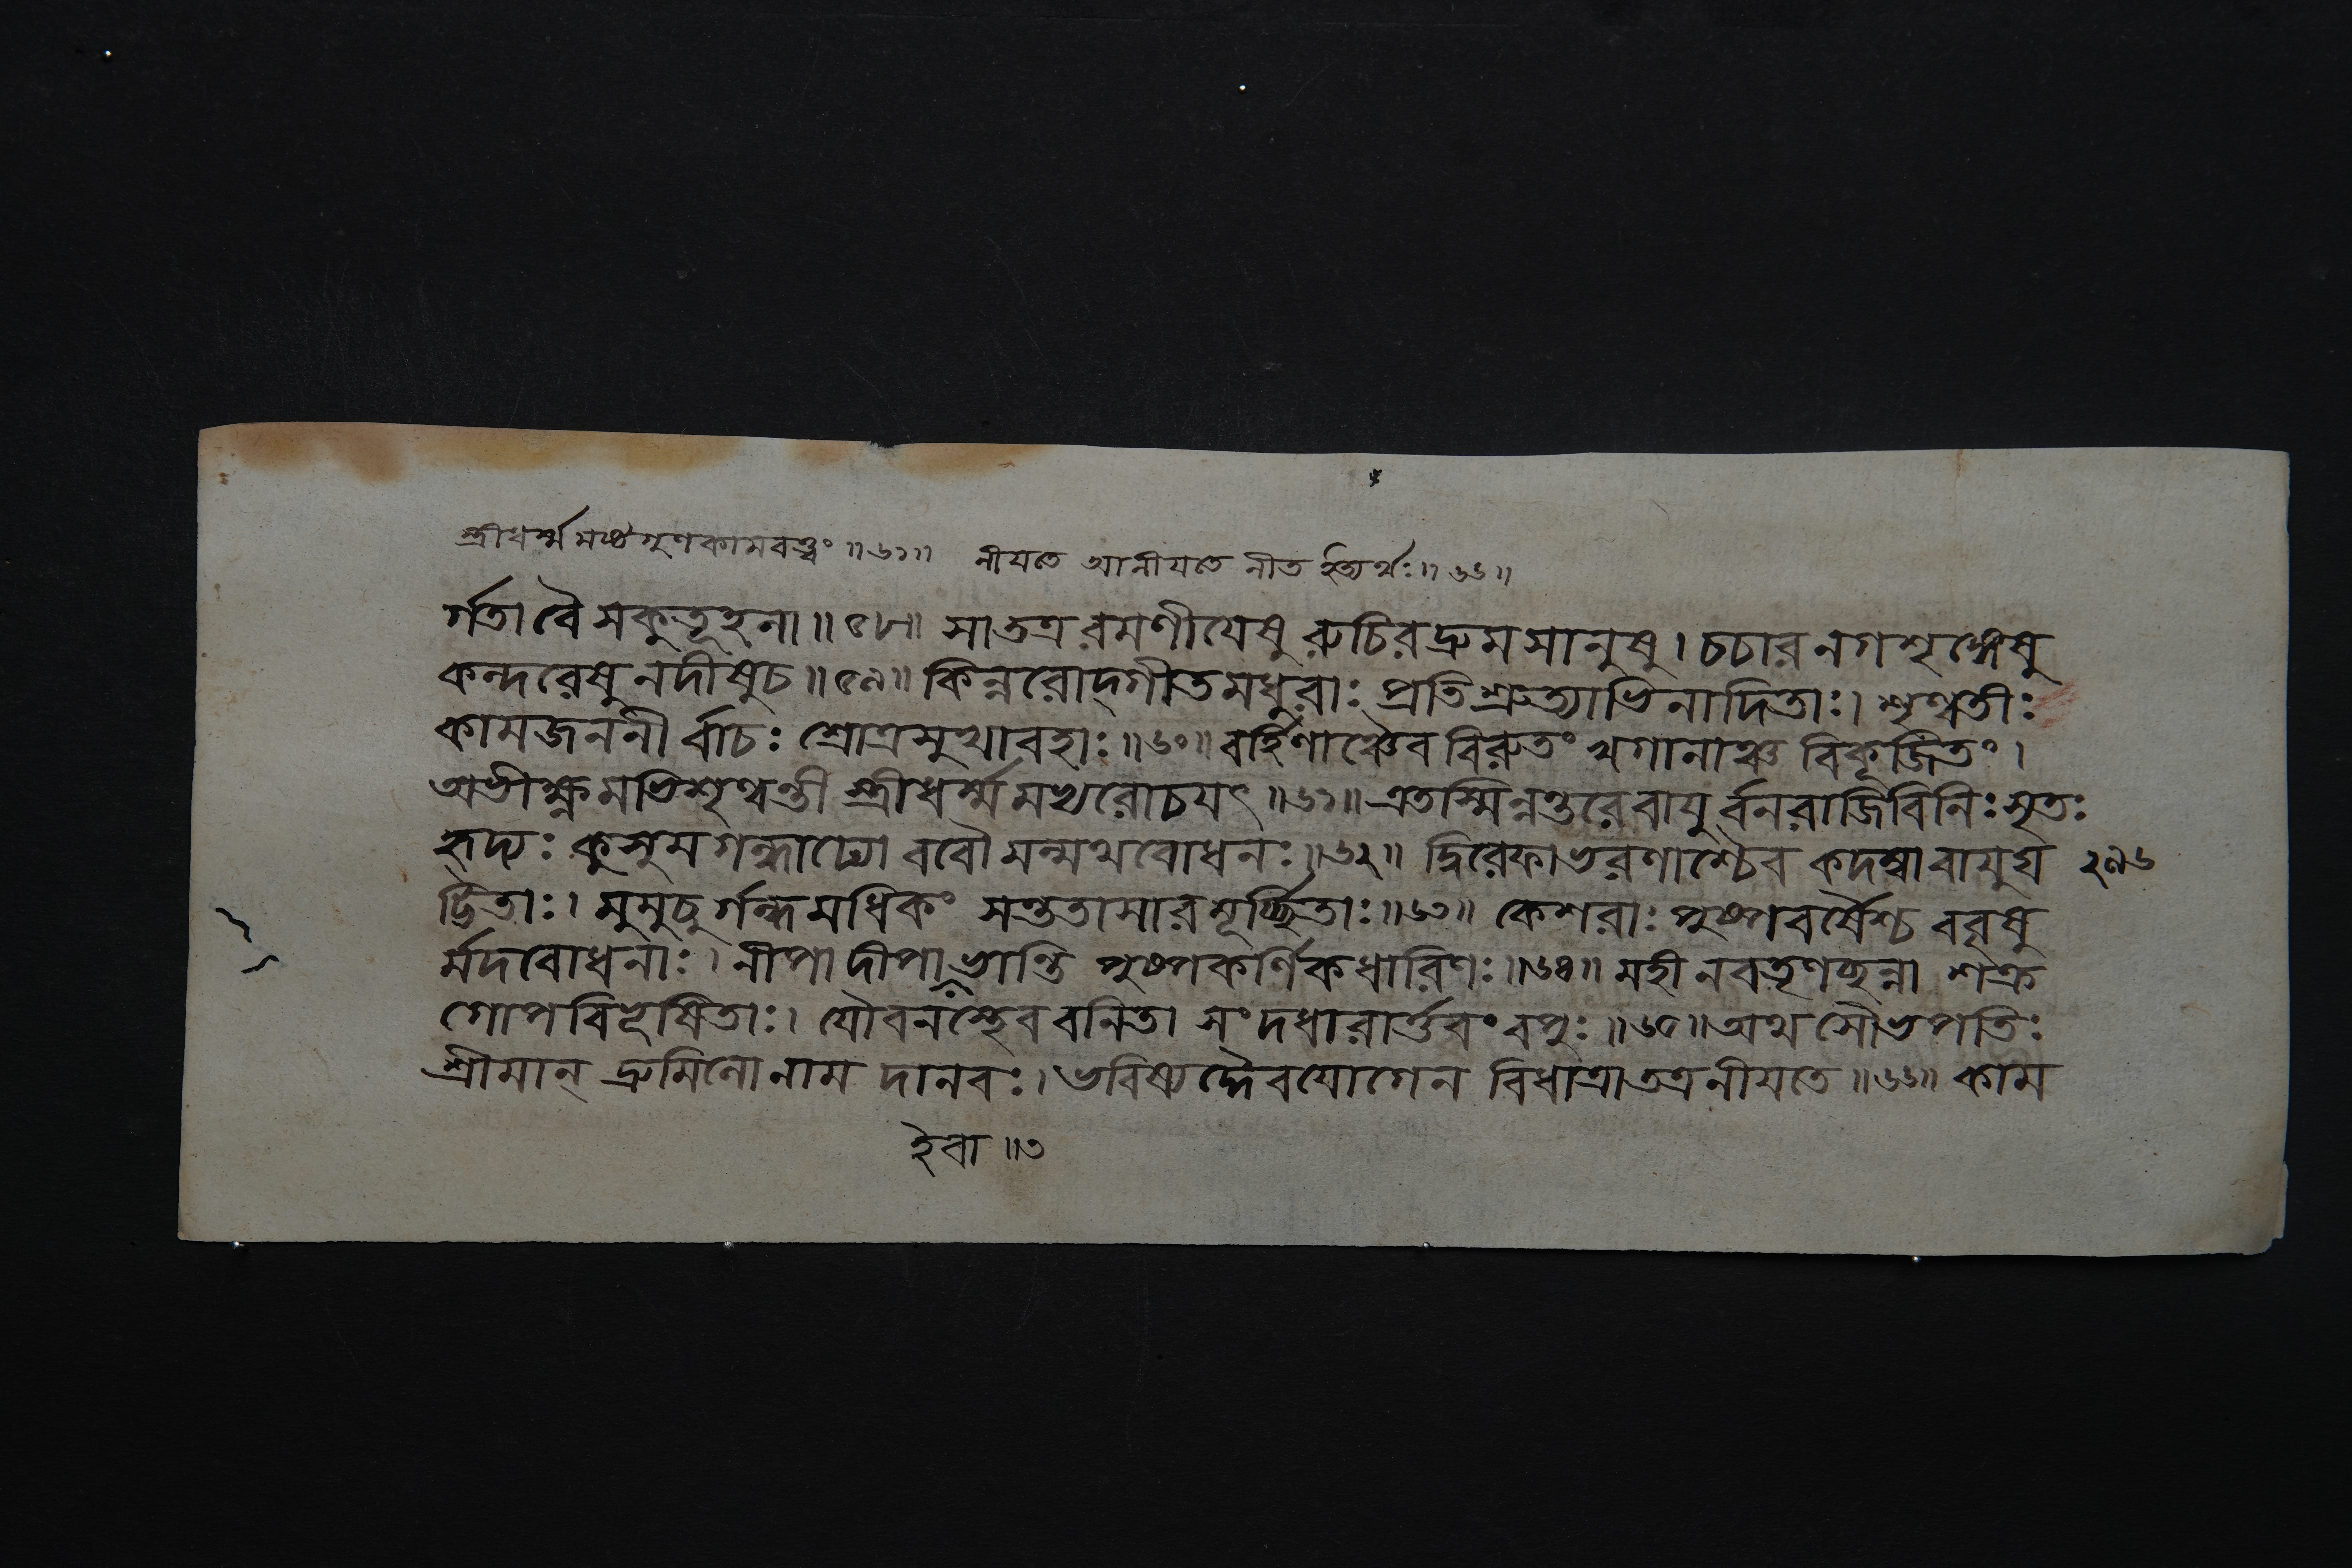 স্ত্রীধর্ম্মমপ্যগুণকামবত্ত্বং ॥৬১॥ নীযতে আনীযতে নীত ইত্যর্থঃ ॥৬৬॥
র্গতা বৈ সকুতূহলা ॥৫৮॥ সা তত্র রমণীযেষু রুচিরদ্রুমসানুষু । চচার নগশৃঙ্গেষু
কন্দরেষু নদীষু চ ॥৫৯॥ কিন্নরোদ্গীতমধুরাঃ প্রতিশ্রুত্যাভিনাদিতাঃ । শৃণ্বতীঃ
কামজননীর্বাচঃ শ্রোত্রসুখাবহাঃ ॥৬০॥ বর্হিণাঞ্চৈব বিরুতং খগানাঞ্চ বিকূজিতং ।
অভীক্ষ্ণমভিশৃণ্বন্তী স্ত্রীধর্ম্মমপ্যরোচযৎ ॥৬১॥ এতস্মিন্নন্তরে বাযুর্বনরাজিবিনিঃসৃতঃ
হৃদ্যঃ কুসুমগন্ধাঢ্যো ববৌ মন্মথবোধনঃ ॥৬২॥ দ্বিরেফাভরণাশ্চৈব কদম্বা বাযুঘ ২৯৬
ট্টিতাঃ । মুমুচুর্গন্ধমধিকং সন্ততাসারমূর্চ্ছিতাঃ ॥৬৩॥ কেশরাঃ পুষ্পবর্ষৈশ্চ ববৃষু
র্মদবোধনাঃ । নীপা দীপা ভান্তি পুষ্পকর্ণিকধারিণঃ ॥৬৪॥ মহী নবতৃণচ্ছন্না শক্র
গোপবিভূষিতাঃ । যৌবনস্থেব বনিতা সংদধারার্ত্তবং বপুঃ ॥৬৫॥ অথ সৌভপতিঃ
শ্রীমান্ দ্রুমিলো নাম দানবঃ । ভবিষ্যদ্দৈবযোগেন বিধাত্রা তত্র নীযতে ॥৬৬॥ কাম
ইবা ॥৩